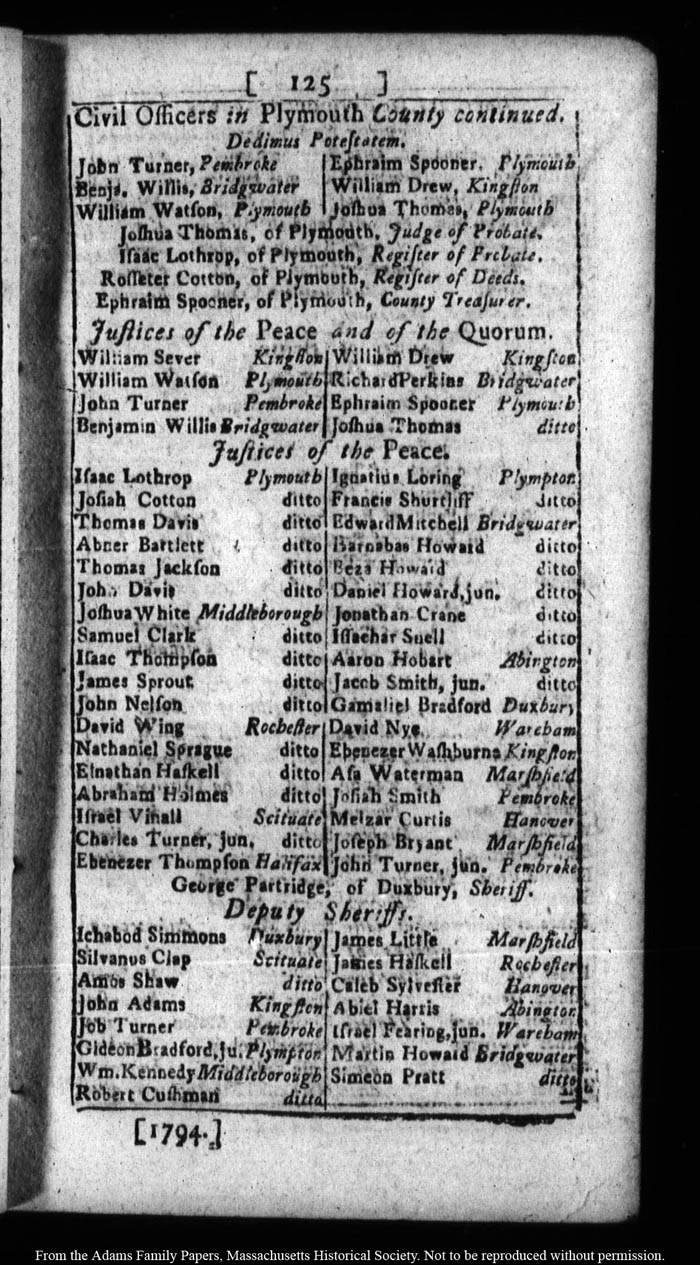 [ 125 ]
Civil Officers in Plymouth County continued.
Dedimus Poteſtatem.
John Turner, Pembroke
Benja. Willis, Bridgwater
William Watſon, Plymouth
Ephraim Spooner. Plymouth
William Drew, Kingſton
Joſhua Thomas, Plymouth
Joſhua Thomas, of Plymouth, Judge of Probate.
Iſaac Lothrop, of Plymouth, Regiſter of Probate.
Roſſeter Cotton, of Plymouth, Regiſter of Deeds.
Ephraim Spooner, of Plymouth, County Treaſurer.
Juſtices of the Peace and of the Quorum.
William Sever Kingſton
William Watſon Plymouth
John Turner Pembroke
Benjamin Willis Bridgwater
William Drew Kingſton
Richard Perkins Bridgwater
Ephraim Spooner Plymouth
Joſhua Thomas ditto
Juſtices of the Peace.
Iſaac Lothrop Plymouth
Joſiah Cotton ditto
Thomas Davis ditto
Abner Bartlett ditto
Thomas Jackſon ditto
John Davis ditto
Joſhua White Middleborough
Samuel Clark ditto
Iſaac Thompſon ditto
James Sprout ditto
John Nelſon ditto
David Wing Rocheſter
Nathaniel Sprague ditto
Elnathan Haſkell ditto
Abraham Holmes ditto
Iſrael Vinall Scituate
Charles Turner, jun. ditto
Ebenezer Thompſon Halifax
Ignatius Loring Plympton
Francis Shurtliff ditto
Edward Mitchell Bridgwater
Barnabas Howard ditto
Beza Howard ditto
Daniel Howard, jun. ditto
Jonathan Crane ditto
Iſſachar Snell ditto
Aaron Hobart Abington
Jacob Smith, jun. ditto
Gamaliel Bradford Duxbury
David Nye Wareham
Ebenezer Waſhburne Kingſton
Aſa Waterman Marſhfield
Joſiah Smith Pembroke
Melzar Curtis Hanover
Joſeph Bryant Marſhfield
John Turner, jun. Pembroke
George Partridge, of Duxbury, Sheriff.
Deputy Sheriffs.
Ichabod Simmons Duxbury
Silvanus Clap Scituate
Amos Shaw ditto
John Adams Kingſton
Job Turner Pembroke
Gideon Bradford, ju. Plympton
Wm. Kennedy Middleborough
Robert Cuſhman ditto
James Little Marſhfield
James Haſkell Rocheſter
Caleb Sylveſter Hanover
Abiel Harris Abington
Iſrael Fearing, jun. Wareham
Martin Howard Bridgwater
Simeon Pratt ditto
[1794.]
From the Adams Family Papers, Massachusetts Historical Society. Not to be reproduced without permission.